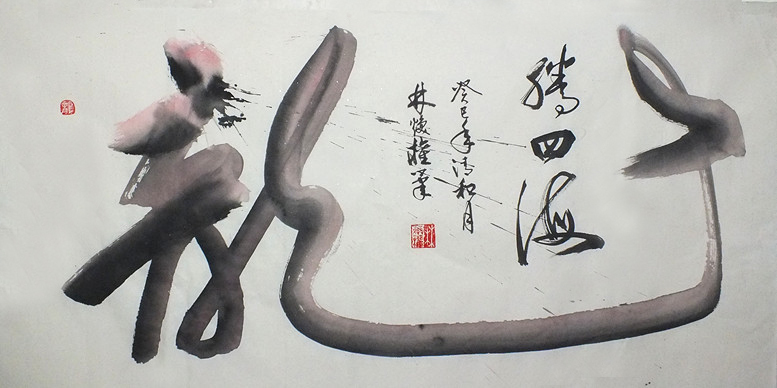 龍
騰四海
癸巳年清和月
林懷權筆